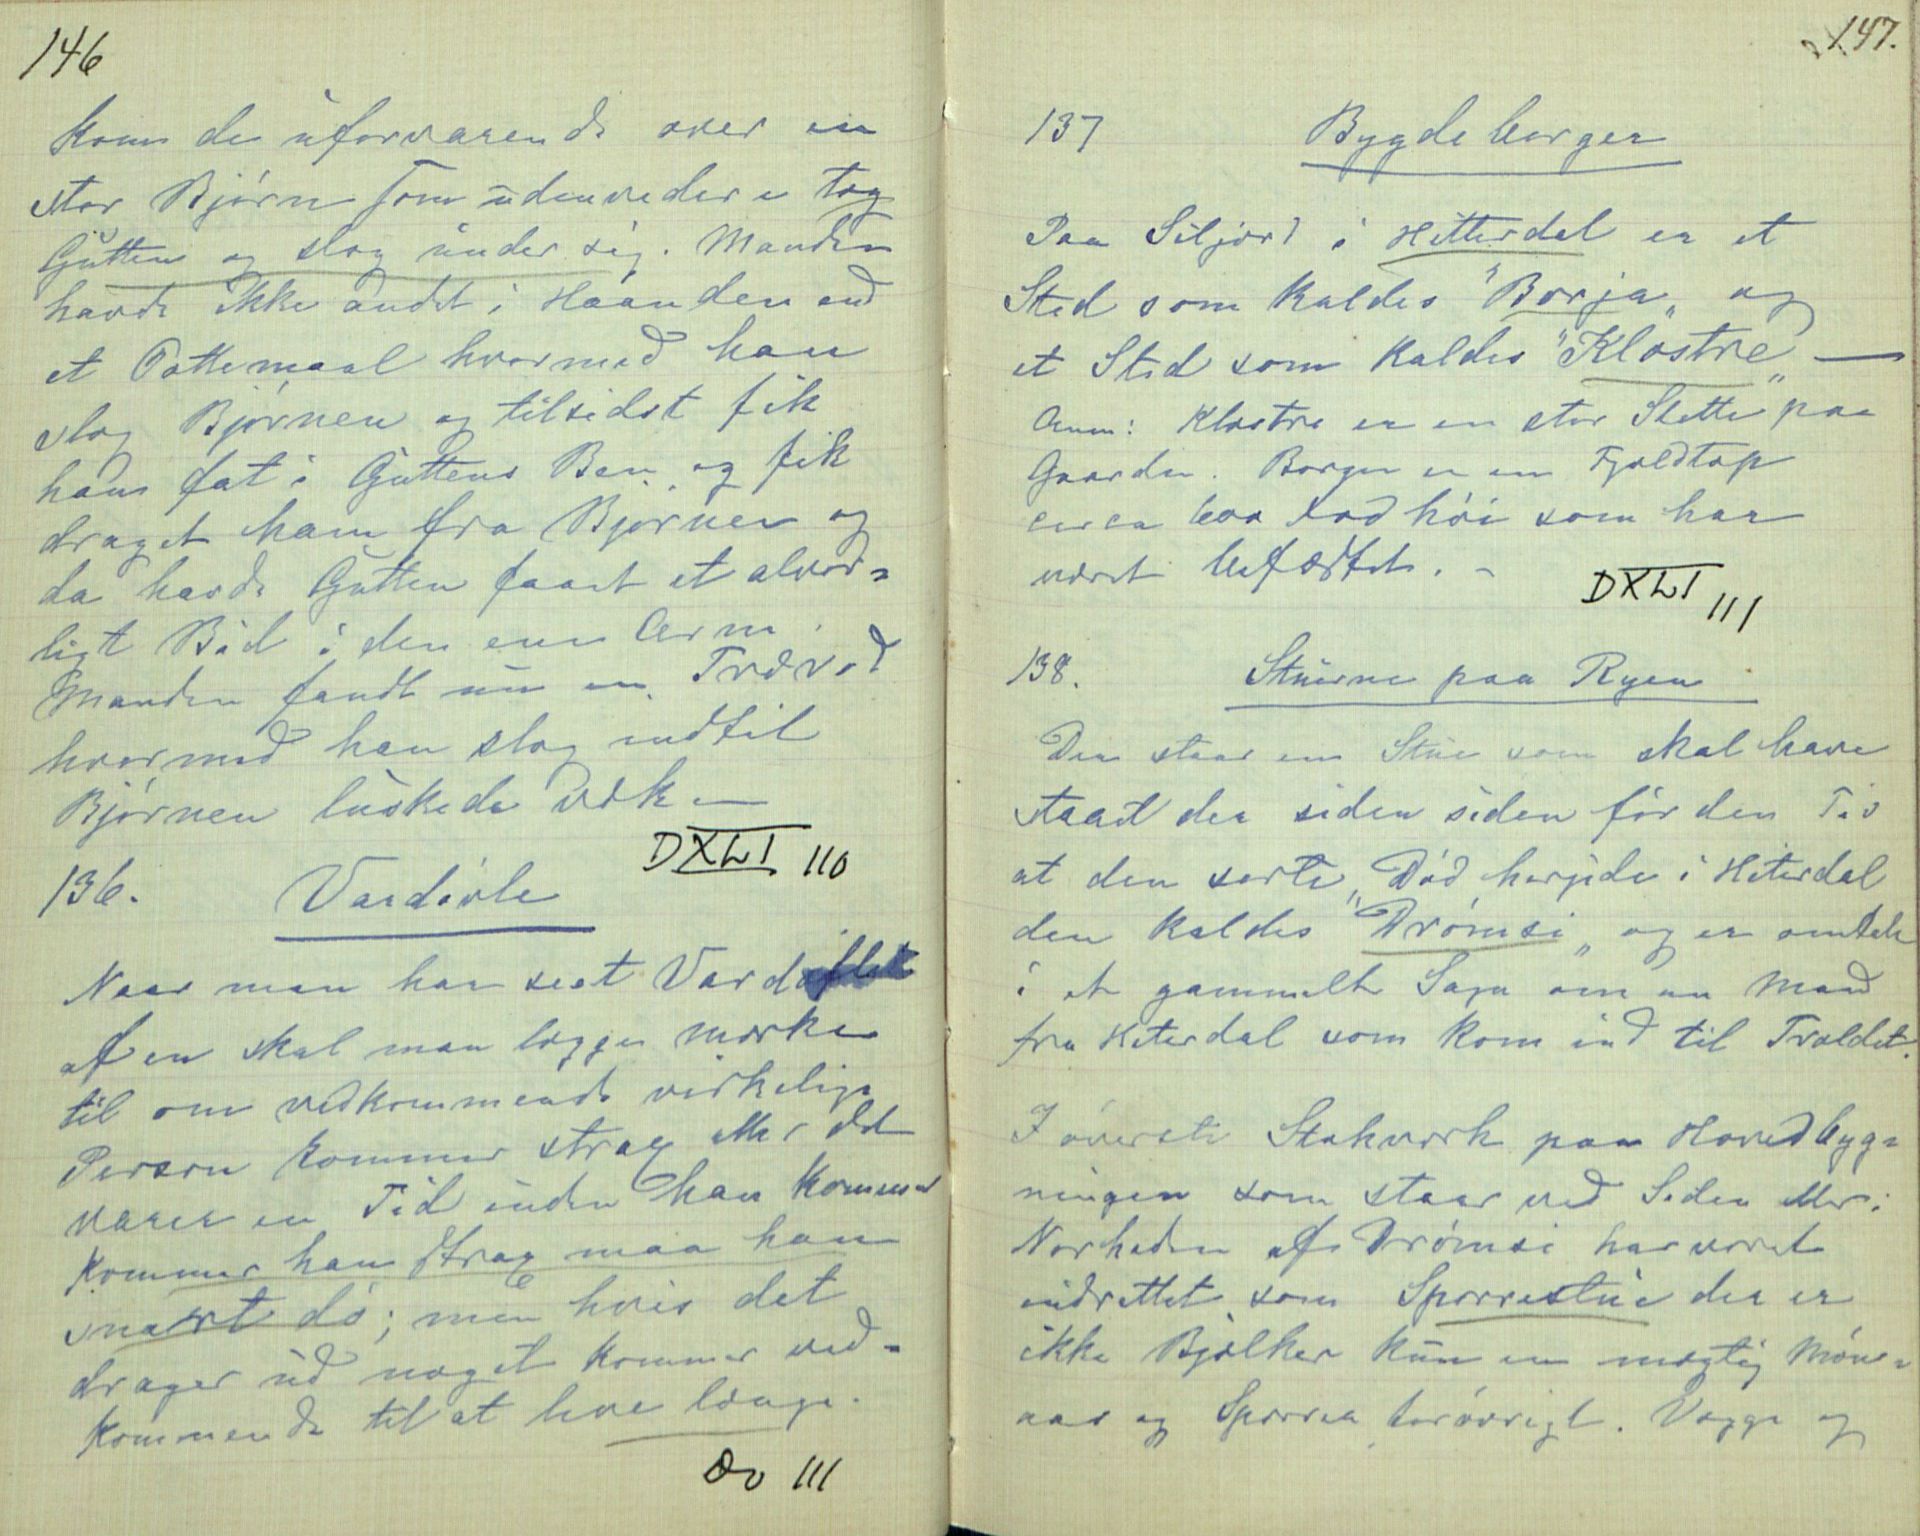 146
kom de uforvarende over en
stor Bjørn som udenvidere tog
Gutten og slog under sig. Manden
havde ikke andet i Haanden end
et Pottemaal hvormed han
slog Bjørnen og tilsidst fik
han fat i Guttens Ben og fik
draget ham fra Bjørnen og
da havde Gutten faaet et alvor-
ligt Bid i den ene Arm.
Manden fandt nu en Træved
hvormed han slog indtil
Bjørnen luskede væk —
DXLI 110
136. Vardøvle
Naar man har seet Vard
af en skal man lægge mærke
til om vedkommende virkelige
Person kommer strax eller det
varer en Tid inden han kommer
kommer han strax maa han
snart dø; men hvis det
drager ud noget kommer ved-
kommende til at leve længe.
Do 111
147.
137 Bygdeborger
Paa Siljord i Hitterdal er et
Sted som kaldes "Borja" og
et Sted som kaldes "Klostre" —
Anm: Klostre er en stor Slette paa
Gaarden. Borgen er en Fjeldtop
circa 600 Fod høi som har
været befæstet. -
DXLI 111
138. Stuerne paa Ryen
Der staar en Stue som skal have
staaet der siden siden før den Tid
at den sorte Død herjede i Hiterdal
den kaldes "Drømsi" og er omtalt
i et gammelt Sagn om en Mand
fra Hiterdal som kom ind til Troldet.
I øverste Stokværk paa Hovedbyg-
ningen som staar ved Siden eller i
Nærheden af Drømsi har været
indrettet som Sperrestue der er
ikke Bjælker kun en mægtig Møns-
aas og Sperrer forøvrigt. Vægge og